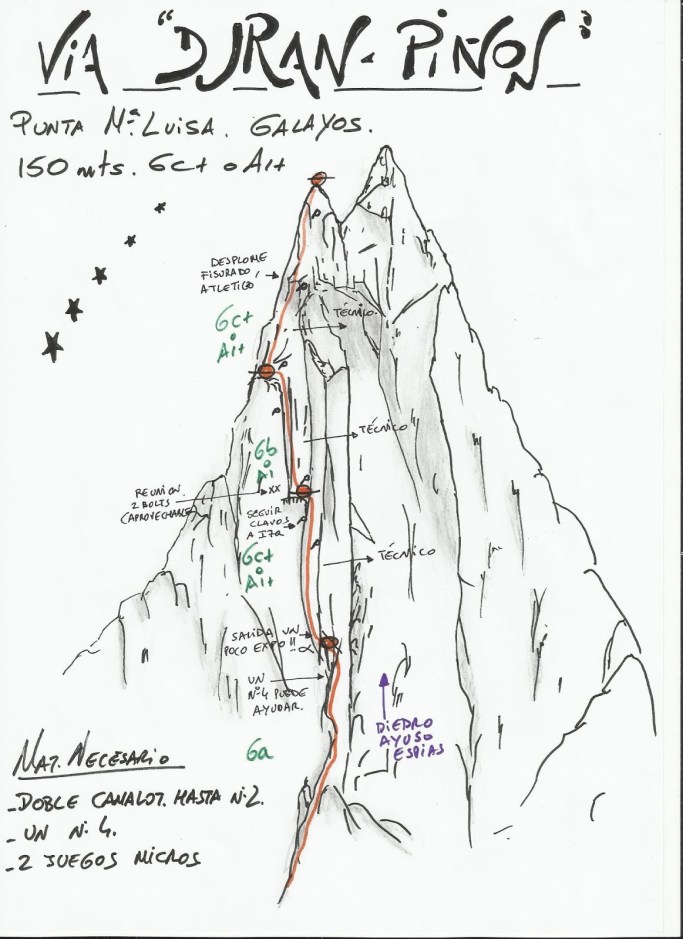 VIA "DURAN-PIÑON"
PUNTA Mª LUISA. GALAYOS.
150 mts. 6c+ o A1+
DESPLOME
FISURADO,
ATLETICO
6c+
o
A1+
TÉCNICO.
6b
o
A1
TÉCNICO
REUNION.
2 BOLTS
(APROVECHABLE)
XX
SEGUIR
CLAVOS
A IZQ
6c+
o
A1+
TÉCNICO
SALIDA UN
POCO EXPO!!
UN
Nº4 PUEDE
AYUDAR.
6a
DIEDRO
AYUSO
ESPIAS
MAT. NECESARIO
-DOBLE CAMALOT. HASTA Nº2.
-UN Nº4.
-2 JUEGOS MICROS